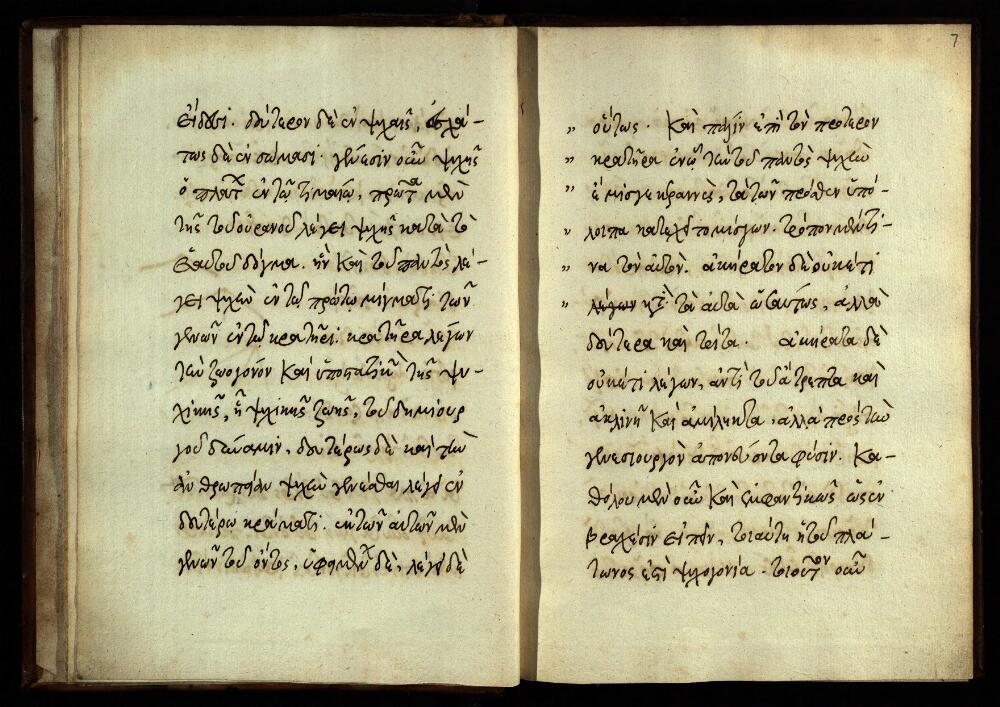 εἴδεσι. δεύτερον δὲ ἐν ψυχαῖς, ἐσχά-
τως δὲ ἐν σώμασι. γένεσιν οὖν ψυχῆς
ὁ πλάτ ἐν τῷ τιμαίῳ, πρῶτα μὲν
τῆς τοῦ οὐρανοῦ λέγει ψυχῆς κατὰ τὸ
ἑαυτοῦ δόγμα. ἣν καὶ τοῦ παντὸς λέ-
γει ψυχὴν ἐν τῷ πρώτῳ μίγματι τῶν
γενῶν ἐν τῷ κρατῆρι. κρατῆρα λέγων
τὴν ζωογόνον καὶ ὑποστατικὴν τῆς ψυ-
χικῆς, ἢ ψυχικῆς ζωῆς, τοῦ δημιουρ
γοῦ δύναμιν. δευτέρως δὲ καὶ τὴν
ἀνθρωπείαν ψυχὴν γενέσθαι λέγει ἐν
δευτέρῳ κράματι. ἐκ τῶν αὐτῶν μὲν
γενῶν τοῦ ὄντος, δὲ, λέγει δὲ
7
„ οὕτως. Καὶ πάλιν ἐπὶ τὸν πρότερον
„ κρατῆρα ἐν ᾧ τὴν τοῦ παντὸς ψυχὴν
„ ἔμισγε κεραννὺς, τὰ τῶν πρόσθεν ὑπό-
„ λοιπα κατεχεῖτο μίσγων. τρόπον μέν τι-
„ να τὸν αὐτὸν. ἀκήρατον δὲ οὐκέτι
„ λέγων τὰ αὐτὰ ὡσαύτως, ἀλλὰ
δεύτερα καὶ τρίτα. ἀκήρατα δὲ
οὐκέτι λέγων, ἀντὶ τοῦ ἄτρεπτα καὶ
ἀκλινῆ καὶ ἀμίληκτα, ἀλλὰ πρὸς τὴν
γενεσιουργὸν ἀπονεύοντα φύσιν. Κα-
θόλου μὲν οὖν καὶ ἐμφαντικῶς ὡς ἐν
βραχέσιν εἰπεῖν, τοιαύτη ἡ τοῦ πλά-
τωνος ἐστὶ ψυχογονία. τοιοῦτον οὖν